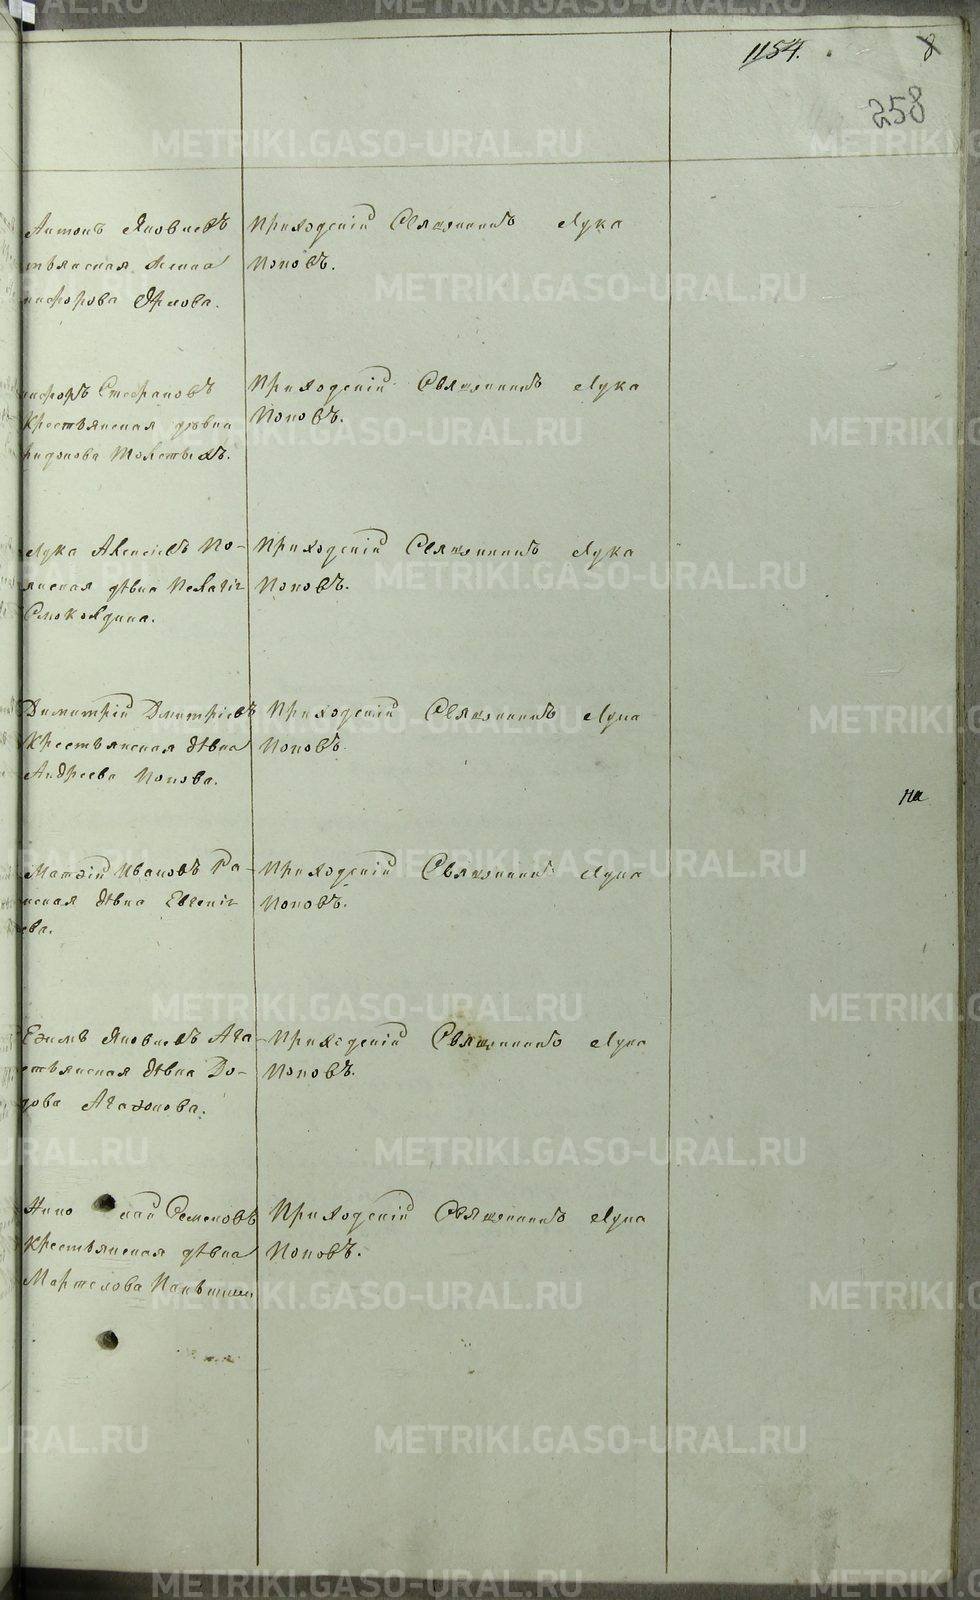 1154.
8
258
Антонъ Яковлевъ
тьянская жена
нифорова Орлова.
Приходскій Священникъ Лука
Поповъ.
нифоръ Стефановъ
Крестьянская дѣвка
ридонова Толстыхъ.
Приходскій Священникъ Лука
Поповъ.
Лука Алексіевъ По-
янская дѣвка Пелагія
Смокодина.
Приходскій Священникъ Лука
Поповъ.
Димитрій Дмитріевъ
Крестьянская дѣвка
Андреева Попова.
Приходскій Священникъ Лука
Поповъ.
На
Матѳій Ивановъ Га-
нская дѣвка Евгенія
ева.
Приходскій Священникъ Лука
Поповъ.
Ефимъ Яковлевъ Ага-
стьянская дѣвка До-
дова Агафонова.
Приходскій Священникъ Лука
Поповъ.
Нико лай Семеновъ
Крестьянская дѣвка
Мартелова
Приходскій Священникъ Лука
Поповъ.
METRIKI.GASO-URAL.RU